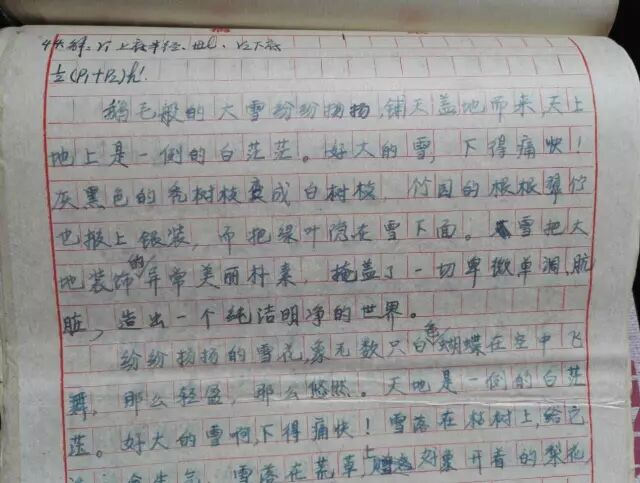 r₁上底半径、母l、r₂下底
½(P₁+P₂)h'
鹅毛般的大雪纷纷扬扬,铺天盖地而来,天上
地上是一例的白茫茫。好大的雪,下得痛快!
灰黑色的秃树枝变成白树枝,竹园的根根翠竹
也换上银装,而把绿叶隐在雪下面。雪把大
地装饰的异常美丽朴素,掩盖了一切卑微单调,肮
脏,造出一个纯洁明净的世界。
纷纷扬扬的雪花,象无数只白色蝴蝶在空中飞
舞,那么轻盈,那么悠然。天地是一例的白茫
茫。好大的雪啊,下得痛快!雪落在枯树上,给它
生气,雪落在荒草上,好象开着的梨花,